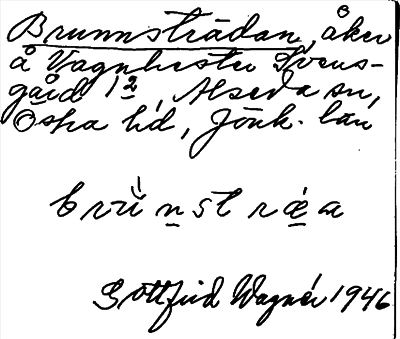 Brunnsträdan, åker
å Vagnhester Svens-
gård 1², Alseda sn,
Östra hd, Jönk. län
brün̠stræ̠a
Gottfrid Wagnér 1946